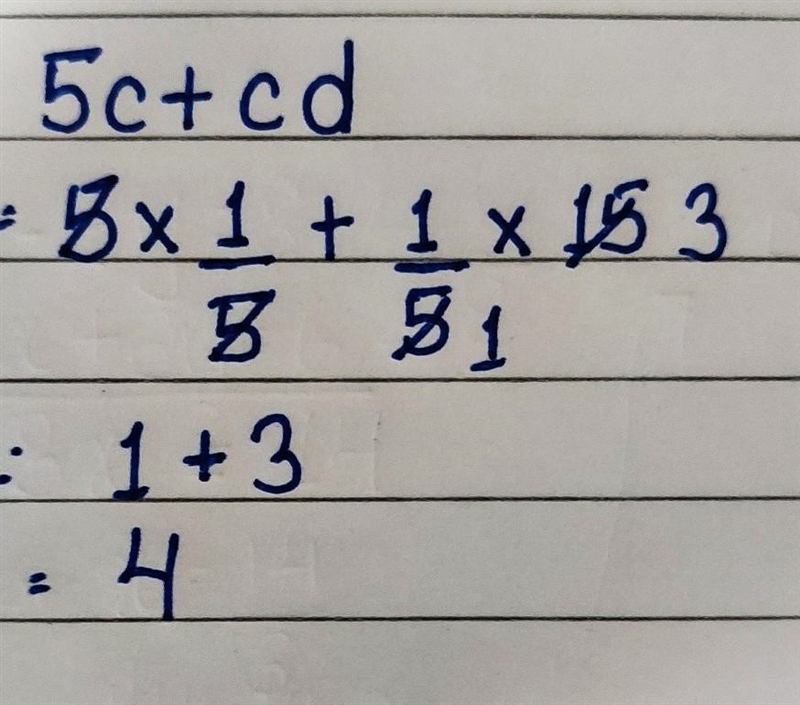 5c+cd
= 5 × 1/5 + 1/5 1 × 15 3
: 1 + 3
= 4